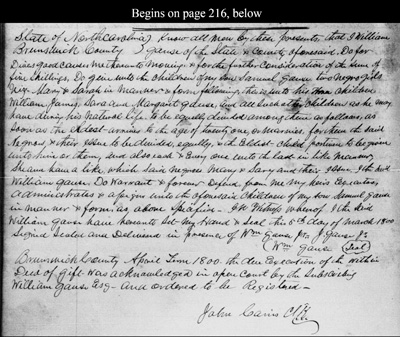 Begins on page 216, below
State of North Carolina) Know all Men by these presents that I William
Brunswick County } Gause of the State & County aforesaid. Do for
Divers good causes me thereunto Moving & for the further Consideration of the sum of
five Shillings, Do give unto the children of my son Samuel Gause two Negro girls
Viz. Mary & Sarah in Manner & form following. that is unto his children
William James, Sara and Margaret Gause, and all such other Children as he may
have during his Natural life to be equally divided among them as follows, as
soon as the Oldest arrives to the age of twenty one, or marries, for them the said
Negroes & their Issue to be divided equally, & the Eldest Child portion to be given
unto him or them, and also each & Every one unto the last in like manner,
Share have a like, which said Negroes Mary & Sary and their Issue, I the said
William Gause. Do Warrant & forever Defend from me My heirs Executors,
Administrators & assigns unto the aforesaid Children of my son Samuel Gause
in manner & form as above Specified - In Witness whereof I the said
William Gause have hereunto Set My Hand & Seal this 6th day of March 1800
Signed Sealed and Delivered in presence of Wm Gause, Jr. J. Gause Jr.
Wm Gause (Seal)
Brunswick County April Term 1800. the due Execution of the within
Deed of Gift was acknowledged in open Court by the Subscribing
William Gause Esq - And ordered to be Registered -
John Cains C/Ct